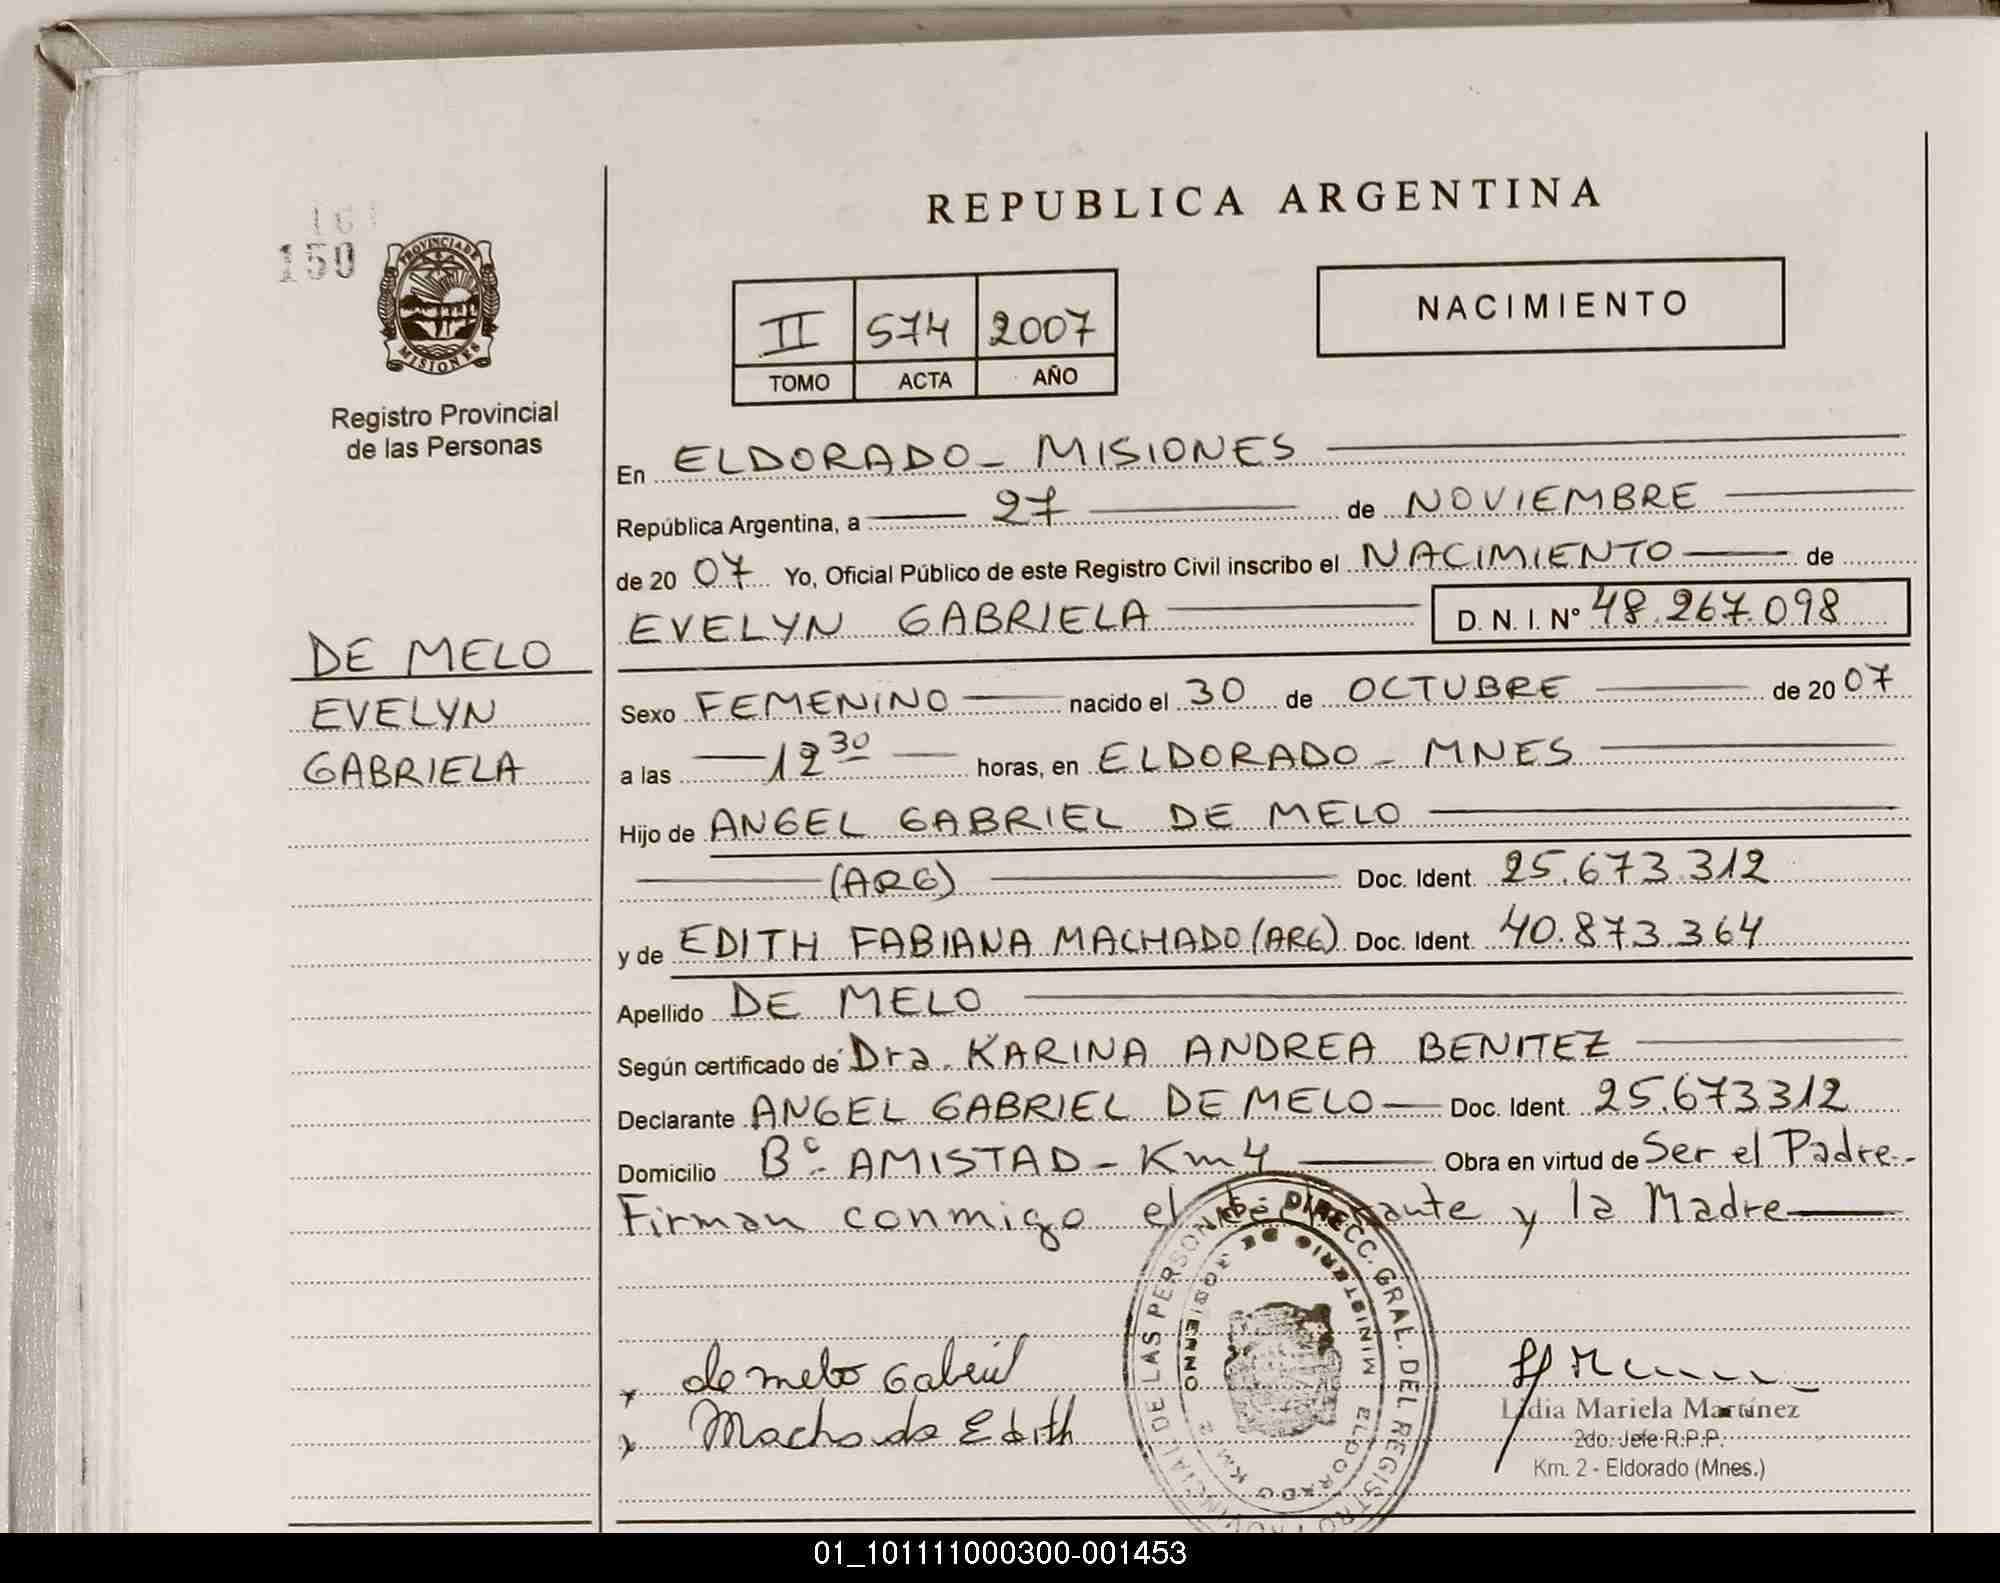 REPUBLICA ARGENTINA
PROVINCIA DE
MISIONES
Registro Provincial
de las Personas
II 574 2007
TOMO ACTA AÑO
NACIMIENTO
En ELDORADO - MISIONES
República Argentina, a 27 de NOVIEMBRE
de 20 07 Yo, Oficial Público de este Registro Civil inscribo el NACIMIENTO de
EVELYN GABRIELA D. N. I. Nº 48.267.098
DE MELO
EVELYN
GABRIELA
Sexo FEMENINO nacido el 30 de OCTUBRE de 20 07
a las 12 30 horas, en ELDORADO - MNES
Hijo de ANGEL GABRIEL DE MELO
(ARG) Doc. Ident. 25.673.312
y de EDITH FABIANA MACHADO (ARG) Doc. Ident. 40.873.364
Apellido DE MELO
Según certificado de Dra. KARINA ANDREA BENITEZ
Declarante ANGEL GABRIEL DE MELO Doc. Ident. 25.673312
Domicilio Bº AMISTAD - Km 4 Obra en virtud de Ser el Padre.-
Firman conmigo el declarante y la Madre
de melo Gabriel
Machado Edith
DIRECC. GRAL. DEL REGISTRO PROVINCIAL DE LAS PERSONAS
MINISTERIO DE GOBIERNO
ELDORADO KM 2
Lidia Mariela Martínez
2do. Jefe R.P.P.
Km. 2 - Eldorado (Mnes.)
01_101111000300-001453